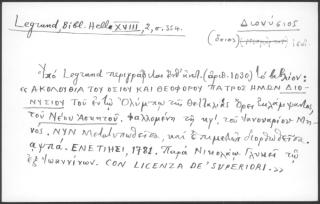 Legrand, Bibl. Hell. XVIII, 2, σ. 354.
ΔΙΟΝΥΣΙΟΣ
(ὅσιος)
Ὑπὸ Legrand περιγράφεται ὑπ' ἀριθ. (ἀριθ. 1030) τὸ βιβλίον:
« ΑΚΟΛΟΥΘΙΑ ΤΟΥ ΟΣΙΟΥ ΚΑΙ ΘΕΟΦΟΡΟΥ ΠΑΤΡΟΣ ΗΜΩΝ ΔΙΟ-
ΝΥΣΙΟΥ τοῦ ἐν τῷ Ὀλύμπῳ τῷ Θετταλικῷ Ὄρει ἐκλάμψαντος,
τοῦ Νέου Ἀσκητοῦ. Ψαλλομένη τῇ κγ'. τοῦ Ἰαννουαρίου Μη-
νός. ΝΥΝ Μετατυπωθεῖσα, καὶ ἐπιμελῶς διορθωθεῖσα.
αψπα. ΕΝΕΤΙΗΣΙ, 1781. Παρὰ Νικολάῳ Γλυκεῖ τῷ
ἐξ Ἰωαννίνων. CON LICENZA DE' SUPERIORI. »